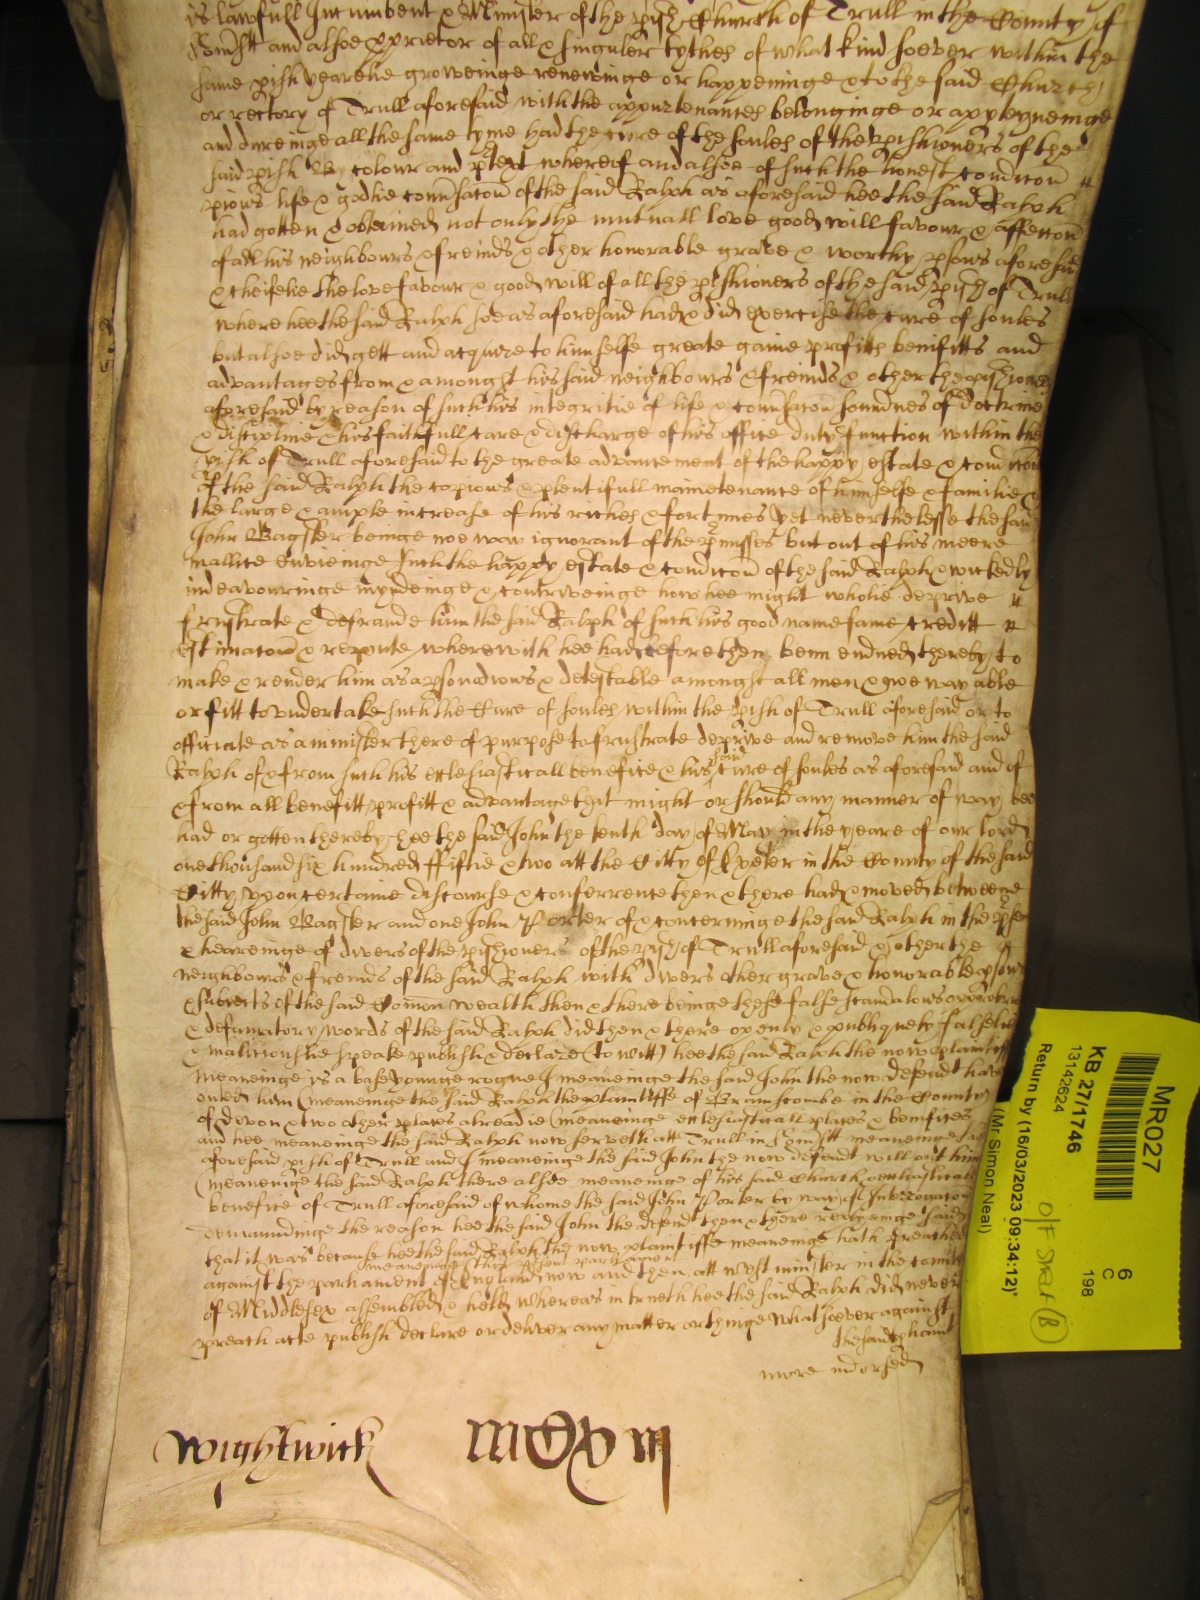 is lawfull Incumbent & Minister of the pish Church of Trull in the County of
Somstt and alsoe pprietor of all & singuler tythes of what kind soever within the
same pish yearelie groweinge renewinge or happeninge & to the said Church
or rectory of Trull aforesaid with the appurtenances belonginge or apperteyneinge
and dureinge all the same tyme had the cure of the soules of the pishioners of the
said pish By colour and ptext whereof and alsoe of such the honest condicon
pious life & godlie convsacon of the said Ralph as aforesaid hee the said Ralph
had gotten & obteined not only the mutuall love good will favour & affeccon
of all his neighbours & freinds & other honorable grave & worthy psons aforesaid
& cheifelie the love favour & good will of all the pishioners of the said pish of Trull
where hee the said Ralph soe as aforesaid had & did exercise the cure of soules
but alsoe did gett and acquire to himselfe greate gaine profitts benifitts and
advantages from & amonght his said neighbours & freinds & other the pishioners
aforesaid by reason of such his integritie of life & convsacon soundnes of doctrine
& discipline & his faithfull care & discharge of his office duty function within the
pish of Trull aforesaid to the greate advancement of the happy estate & condicon
of the said Ralph the copious & plentifull maintenance of himselfe & familie &
the large & ample increase of his riches & fortunes yet neverthelesse the said
John Bagster beinge noe way ignorant of the pmisses but out of his meere
mallice envieinge such the happy estate & condicon of the said Ralph & wickedly
indeavouringe & contriveinge how hee might wholie deprive
frustrate & defraude him the said Ralph of such his good name fame creditt
estimacon & repute wherewith hee had before then benn endued thereby to
make & render him as a pson odious & detestable amongst all men & noe way able
or fitt to undertake such the Cure of soules within the pish of Trull aforesaid or to
officiate as a minister there of purpose to frustrate deprive and remove him the said
Ralph of & from such his ecclesiasticall benefice & his said cure of soules as aforesaid and of
& from all benefitt profitt & advantage that might or should any manner of way bee
had or gotten thereby hee the said John the tenth day of May in the yeare of our lord
one thousand six hundred ffiftie & two att the Citty of Exeter in the County of the said
Citty upon certaine discourse & conferrence then & there had & moved betweene
the said John Bagster and one John Porter of & concerninge the said Ralph in the psence
& heareinge of divers of the pishioners of the pish of Trull aforesaid & other the
neighbours & freinds of the said Ralph with divers other grave & honorable psons
& subiects of the said Comon wealth then & there beinge these false scandalous
& defamatory words of the said Ralph did then & there openly & publiquely falselie
& maliciouslie speake publish & declare (to witt) hee the said Ralph the now plaintiffe
meaneinge is a base younge rogue I meaneinge the said John the now defend have
outed him (meaneinge the said Ralph the plaintiffe of Branscombe in the County
of devon & two other places alreadie (meaneinge ecclesiasticall places & benifices
and hee meaneinge the said Ralph now serveth att Trull in Somstt meaneinge the
aforesaid pish of Trull and I meaneinge the said John the now defendt will out him
(meaneinge the said Ralph there alsoe meaneinge of his said Church ecclesiasticall
benefice of Trull aforesaid of whome the said John Porter by way of Interrogacon
demaundinge the reason hee the said John the defend then & there replyeinge said
that it was because hee the said Ralph the now plaintiffe meaneinge hath preached
against the parliament meaneinge this psent parliament of England now and then att Westminster in the County
of Middlesex assembled & held Whereas in trueth hee the said Ralph did never
preach acte publish declare or deliver any matter or thinge whatsoever against
the said
more indorsed
Wightwick
MR027
6
C
198
KB 27/1746
13142624
Return by (16/03/2023 09:34:12)*
(Mr Simon Neal)